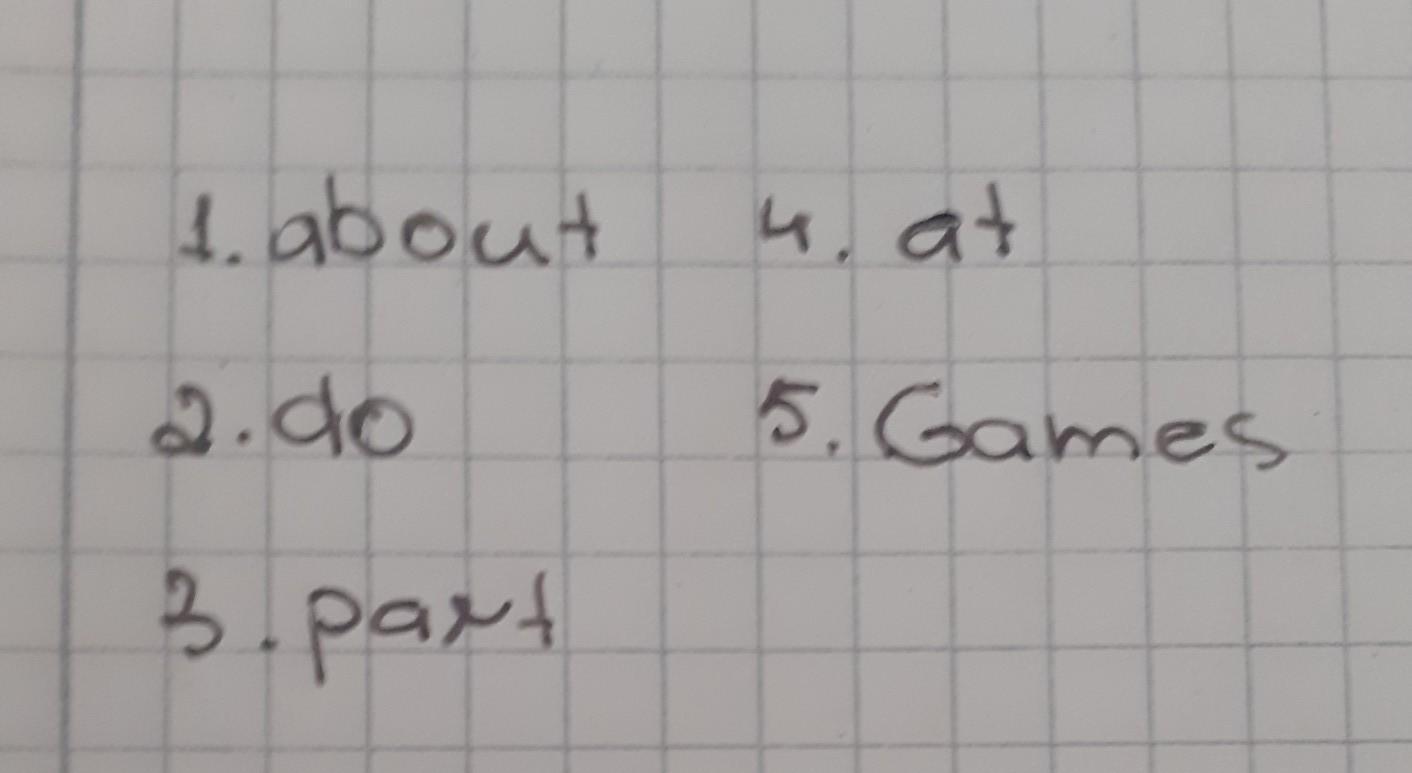 1. about
2. do
3. part
4. at
5. Games